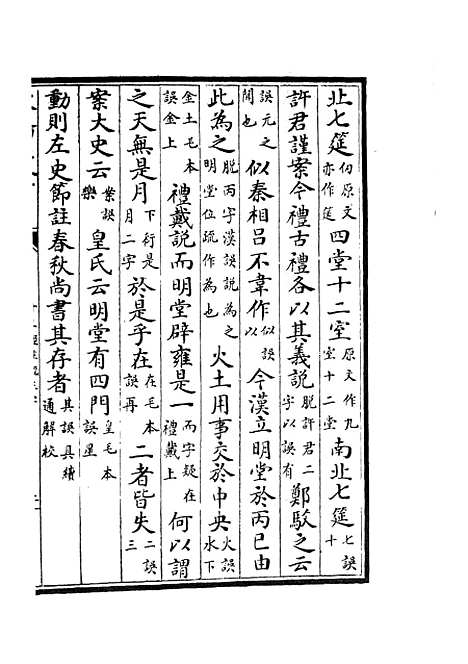 北七筵原文亦作筵四堂十二室原文作九室十二堂南北七筵七誤十
許君謹案今禮古禮各以其義說脫許君二字以誤有鄭駁之云
誤元之也似秦相呂不韋作似誤以今漢立明堂於丙巳由
此為之脫丙字漢誤說為之明堂位疏作為也火土用事交於中央火誤水下
金土毛本誤金上禮戴說而明堂辟雍是一而字疑在禮戴上何以謂
之天無是月下衍是月二字於是乎在在毛本誤再二者皆失二誤三
案大史云案誤樂皇氏云明堂有四門皇毛本誤星
動則左史節註春秋尚書其存者其誤具續通解校